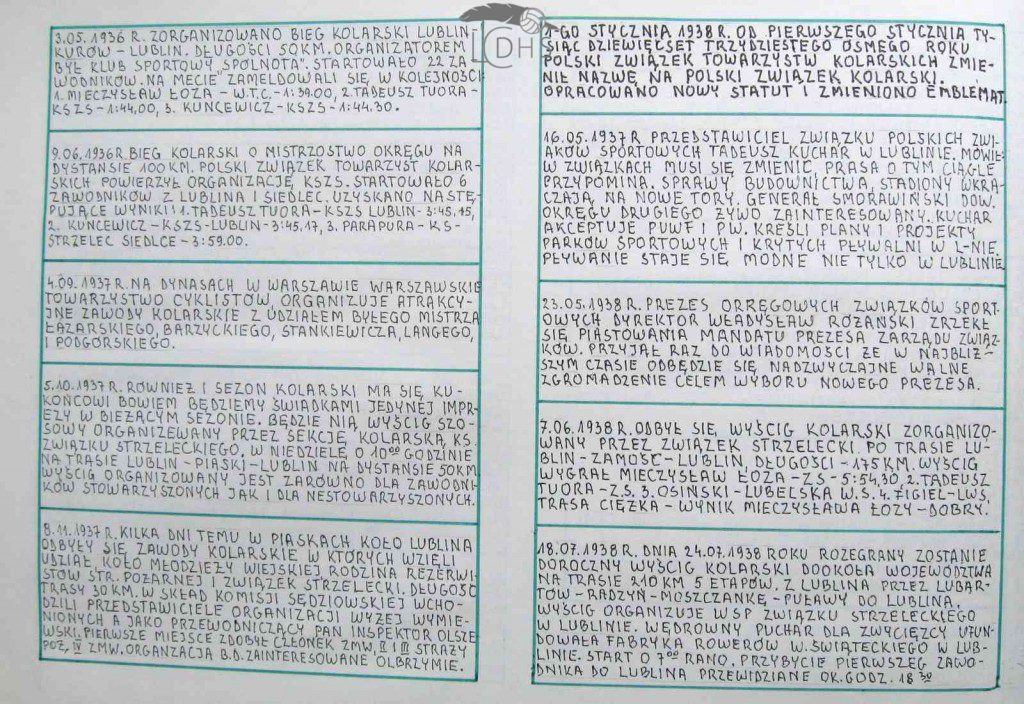 LCDHS
3.05.1936 R. ZORGANIZOWANO BIEG KOLARSKI LUBLIN-
KURÓW - LUBLIN. DŁUGOŚCI 50 KM. ORGANIZATOREM
BYŁ KLUB SPORTOWY "SPÓLNOTA". STARTOWAŁO 22 ZA
WODNIKÓW. NA MECIE ZAMELDOWALI SIĘ W KOLEJNOŚCI
1. MIECZYSŁAW ŁOZA - W.T.C. - 1:39.00, 2. TADEUSZ TUORA -
KSZS - 1:44,00, 3. KUNCEWICZ - KSZS - 1:44.30.
9.06.1936 R. BIEG KOLARSKI O MISTRZOSTWO OKRĘGU NA
DYSTANSIE 100 KM. POLSKI ZWIĄZEK TOWARZYST KOLAR-
SKICH POWIERZYŁ ORGANIZACJĘ KSZS. STARTOWAŁO 6
ZAWODNIKÓW Z LUBLINA I SIEDLEC. UZYSKANO NASTĘ-
PUJĄCE WYNIKI: 1. TADEUSZ TUORA - KSZS LUBLIN - 3:45,15,
2. KUNCEWICZ - KSZS - LUBLIN - 3:45,17, 3. PARAPURA - KS-
STRZELEC SIEDLCE - 3:59.00.
4.09.1937 R. NA DYNASACH W WARSZAWIE WARSZAWSKIE
TOWARZYSTWO CYKLISTÓW, ORGANIZUJE ATRAKCY-
JNE ZAWODY KOLARSKIE Z UDZIAŁEM BYŁEGO MISTRZA
ŁAZARSKIEGO, BARZYCKIEGO, STANKIEWICZA, LANGEGO,
I PODGÓRSKIEGO.
5.10.1937 R. RÓWNIEŻ I SEZON KOLARSKI MA SIĘ KU-
KOŃCOWI BOWIEM BĘDZIEMY ŚWIADKAMI JEDYNEJ IMPR-
EZY W BIEŻĄCYM SEZONIE. BĘDZIE NIĄ WYŚCIG SZO-
SOWY ORGANIZEWANY PRZEZ SEKCJĘ KOLARSKĄ KS.
ZWIĄZKU STRZELECKIEGO. W NIEDZIELĘ O 10⁰⁰ GODZINIE
NA TRASIE LUBLIN - PIASKI - LUBLIN NA DYSTANSIE 50 KM
WYŚCIG ORGANIZOWANY JEST ZARÓWNO DLA ZAWODNI-
KÓW STOWARZYSZONYCH JAK I DLA NESTOWARZYSZONYCH.
8.11.1937 R. KILKA DNI TEMU W PIASKACH KOŁO LUBLINA
ODBYŁY SIĘ ZAWODY KOLARSKIE W KTÓRYCH WZIĘLI
UDZIAŁ, KOŁO MŁODZIEŻY WIEJSKIEJ RODZINA REZERWI-
STÓW STR. POŻARNEJ I ZWIĄZEK STRZELECKI. DŁUGOŚĆ
TRASY 30 KM. W SKŁAD KOMISJI SĘDZIOWSKIEJ WCHO-
DZILI PRZEDSTAWICIELE ORGANIZACJI WYŻEJ WYMIE-
NIONYCH A JAKO PRZEWODNICZĄCY PAN INSPEKTOR OLSZE
WSKI. PIERWSZE MIEJSCE ZDOBYŁ CZŁONEK ZMW, II I III STRAŻY
POŻ. IV ZMW. ORGANZACJA B.D. ZAINTERESOWANE OLBRZYMIE.
1-GO STYCZNIA 1938 R. OD PIERWSZEGO STYCZNIA TY-
SIĄC DZIEWIĘĆSET TRZYDZIESTEGO ÓSMEGO ROKU
POLSKI ZWIĄZEK TOWARZYSTW KOLARSKICH ZMIE-
NIŁ NAZWĘ NA POLSKI ZWIĄZEK KOLARSKI.
OPRACOWANO NOWY STATUT I ZMIENIONO EMBLEMAT.
16.05.1937 R PRZEDSTAWICIEL ZWIĄZKU POLSKICH ZWI-
ĄKÓW SPORTOWYCH TADEUSZ KUCHAR W LUBLINIE. MÓWIE-
W ZWIĄZKACH MUSI SIĘ ZMIENIĆ, PRASA O TYM CIĄGLE
PRZYPOMINA. SPRAWY BUDOWNICTWA, STADIONY WKRA-
CZAJĄ NA NOWE TORY. GENERAŁ SMORAWIŃSKI DOW.
OKRĘGU DRUGIEGO ŻYWO ZAINTERESOWANY. KUCHAR
AKCEPTUJE PUWF I PW. KREŚLI PLANY I PROJEKTY
PARKÓW SPORTOWYCH I KRYTYCH PŁYWALNI W L-NIE.
PŁYWANIE STAJE SIĘ MODNE NIE TYLKO W LUBLINIE.
23.05.1938 R. PREZES ORRĘGOWYCH ZWIĄZKÓW SPORT-
OWYCH DYREKTOR WŁADYSŁAW RÓŻAŃSKI ZRZEKŁ
SIĘ PIASTOWANIA MANDATU PREZESA ZARZĄDU ZWIĄZ-
KÓW. PRZYJĄŁ RAZ DO WIADOMOŚCI ŻE W NAJBLIŻ-
SZYM CZASIE ODBĘDZIE SIĘ NADZWYCZAJNE WALNE
ZGROMADZENIE CELEM WYBORU NOWEGO PREZESA.
7.06.1938 R. ODBYŁ SIĘ WYŚCIG KOLARSKI ZORGANIZO-
WANY PRZEZ ZWIĄZEK STRZELECKI. PO TRASIE LU-
BLIN - ZAMOŚĆ - LUBLIN, DŁUGOŚCI - 175 KM. WYŚCIG
WYGRAŁ MIECZYSŁAW ŁOZA - ZS - 5:54,30, 2. TADEUSZ
TUORA - Z.S. 3. OSIŃSKI - LUBELSKA W.S. 4. FIGIEL - LWS.
TRASA CIĘŻKA - WYNIK MIECZYSŁAWA ŁOZY - DOBRY.
18.07.1938 R. DNIA 24.07.1938 ROKU ROZEGRANY ZOSTANIE
DOROCZNY WYŚCIG KOLARSKI DOOKOŁA WOJEWÓDZTWA
NA TRASIE 210 KM 5 ETAPÓW. Z LUBLINA PRZEZ LUBAR-
TÓW - RADZYŃ - MOSZCZANKĘ - PUŁAWY DO LUBLINA.
WYŚCIG ORGANIZUJE WSP ZWIĄZKU STRZELECKIEGO
W LUBLINIE. WĘDROWNY PUCHAR DLA ZWYCIĘZCY UFUN-
DOWAŁA FABRYKA ROWERÓW W. ŚWIĄTECKIEGO W LUB-
LINIE. START O 7⁰⁰ RANO. PRZYBYCIE PIERWSZEG ZAWO-
DNIKA DO LUBLINA PRZEWIDZIANE OK. GODZ. 18³⁰